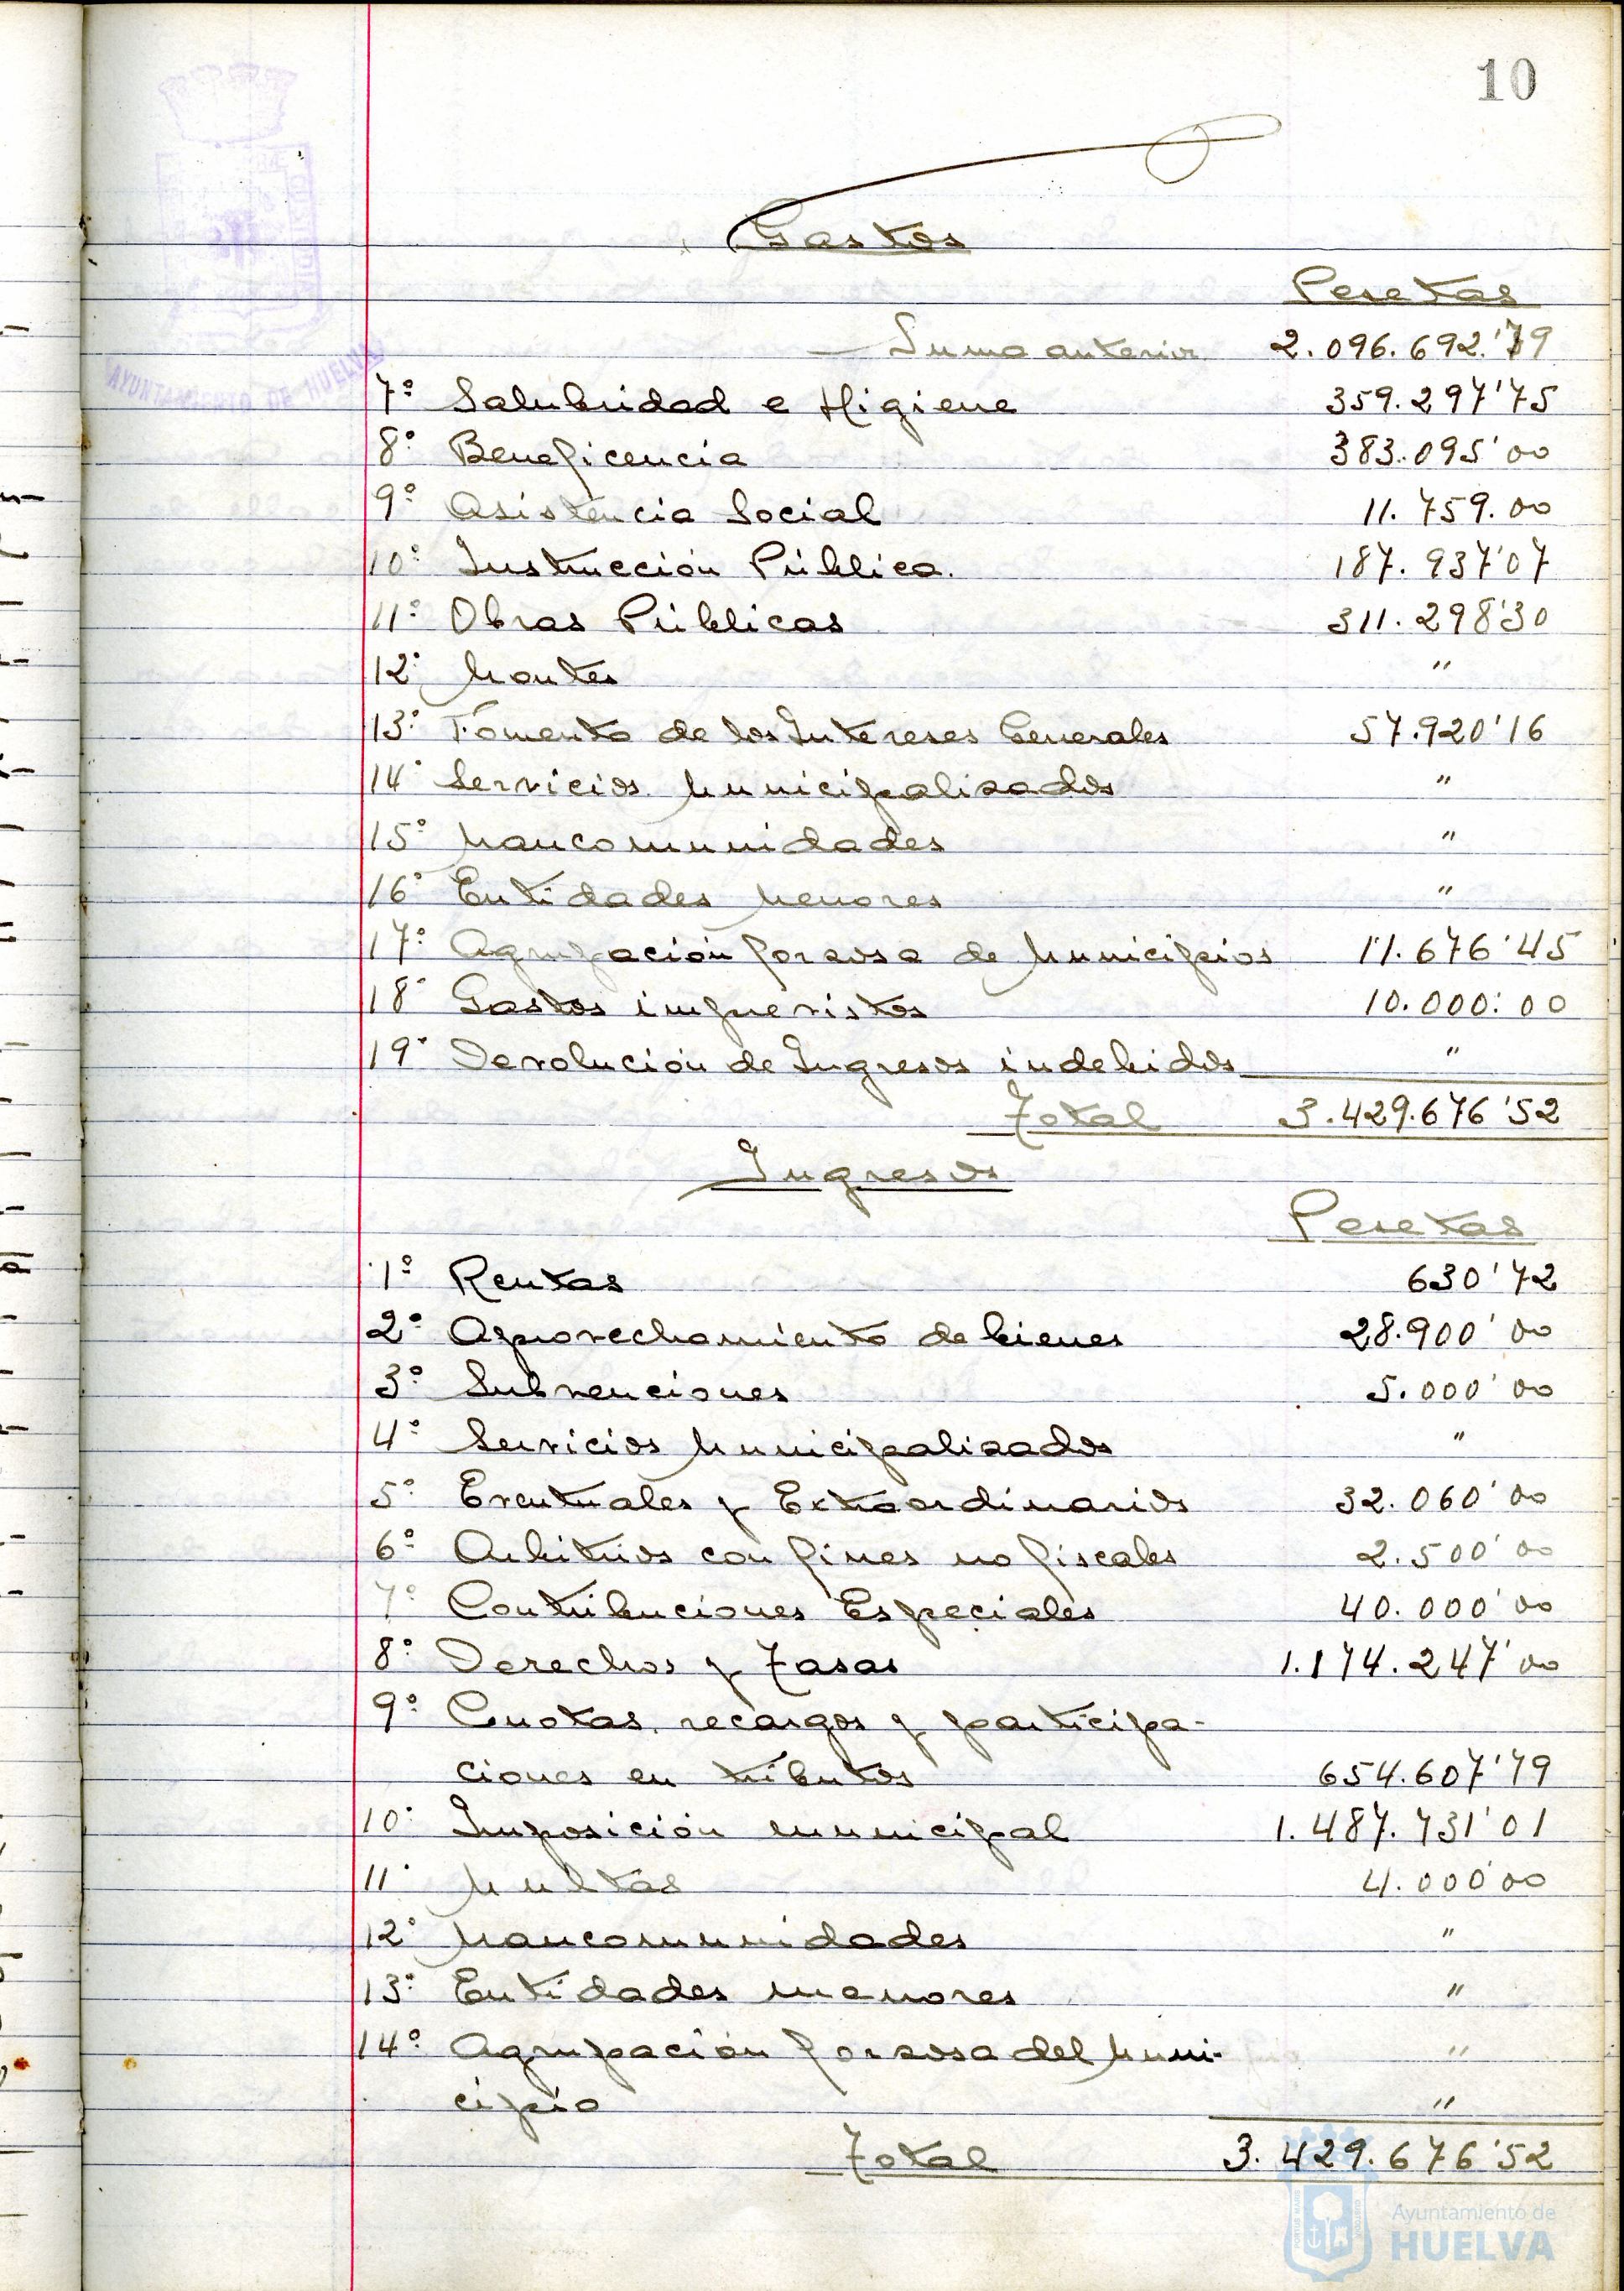 10
Gastos
Pesetas
Suma anterior 2.096.692.'79
7º Salubridad e Higiene 359.297'75
8º Beneficencia 383.095'00
9º Asistencia Social 11.759.00
10º Instrucción Pública. 187.937'07
11º Obras Públicas 311.298'30
12º Montes "
13º Fomento de los Intereses Generales 57.920'16
14º Servicios Municipalisados "
15º Mancomunidades "
16º Entidades Menores "
17º Agrupación forsosa de Municipios 11.676'45
18º Gastos imprevistos 10.000:00
19º Devolución de Ingresos indebidos "
Total 3.429.676'52
Ingresos
Pesetas
1º Rentas 630'72
2º Aprovechamiento de bienes 28.900'00
3º Subvenciones 5.000'00
4º Servicios Municipalisados "
5º Eventuales y Extraordinarios 32.060'00
6º Arbitrios con fines no fiscales 2.500'00
7º Contribuciones Especiales 40.000'00
8º Derechos y Tasas 1.174.247'00
9º Cuotas, recargos y participa-
ciones en tributos 654.607'79
10º Imposición municipal 1.487.731'01
11º Multas 4.000'00
12º Mancomunidades "
13º Entidades menores "
14º Agrupación forsosa del Muni- "
cipio "
Total 3.429.676'52
AYUNTAMIENTO DE HUELVA
Ayuntamiento de
HUELVA